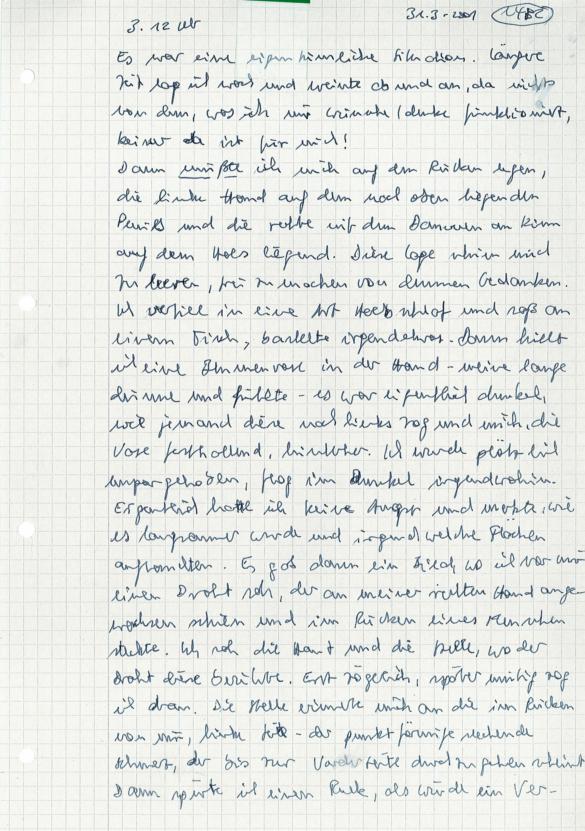 31.3.2001 1482
3. 12 Uhr
Es war eine eigentümliche Situation. Längere
Zeit lag ich wach und weinte ab und an, da nichts
von dem, was ich mir wünschte / denke funktioniert,
keiner da ist für mich!
Dann mußte ich mich auf den Rücken legen,
die linke Hand auf dem nach oben liegenden
Penis und die rechte mit dem Daumen am Kinn
auf dem Hals liegend. Diese Lage schien mich
zu leeren, frei zu machen von dummen Gedanken.
Ich verfiel in eine Art Halbschlaf und saß an
einem Tisch, bastelte irgendetwas. Dann hielt
ich eine Blumenvase in der Hand - eine lange
dünne und fühlte - es war eigentlich dunkel,
wie jemand diese nach links zog und mich, die
Vase festhaltend, hinterher. Ich wurde plötzlich
emporgehoben, flog im Dunkel irgendwohin.
Erstaunlich hatte ich keine Angst und merkte, wie
es langsamer wurde und irgendwelche Flächen
auftauchten. Es gab dann ein Stück wo ich vor mir
einen Draht sah, der an meiner rechten Hand ange-
wachsen schien und im Rücken eines Menschen
steckte. Ich sah die Haut und die Stelle, wo der
Draht diese berührte. Erst zögerlich, später mutig zog
ich dran. Die Stelle erinnerte mich an die im Rücken
von mir, linke Seite - der punktförmige stechende
Schmerz, der bis zur Vorderseite durchzugehen scheint
Dann spürte ich einen Ruck, als würde ein Ver-